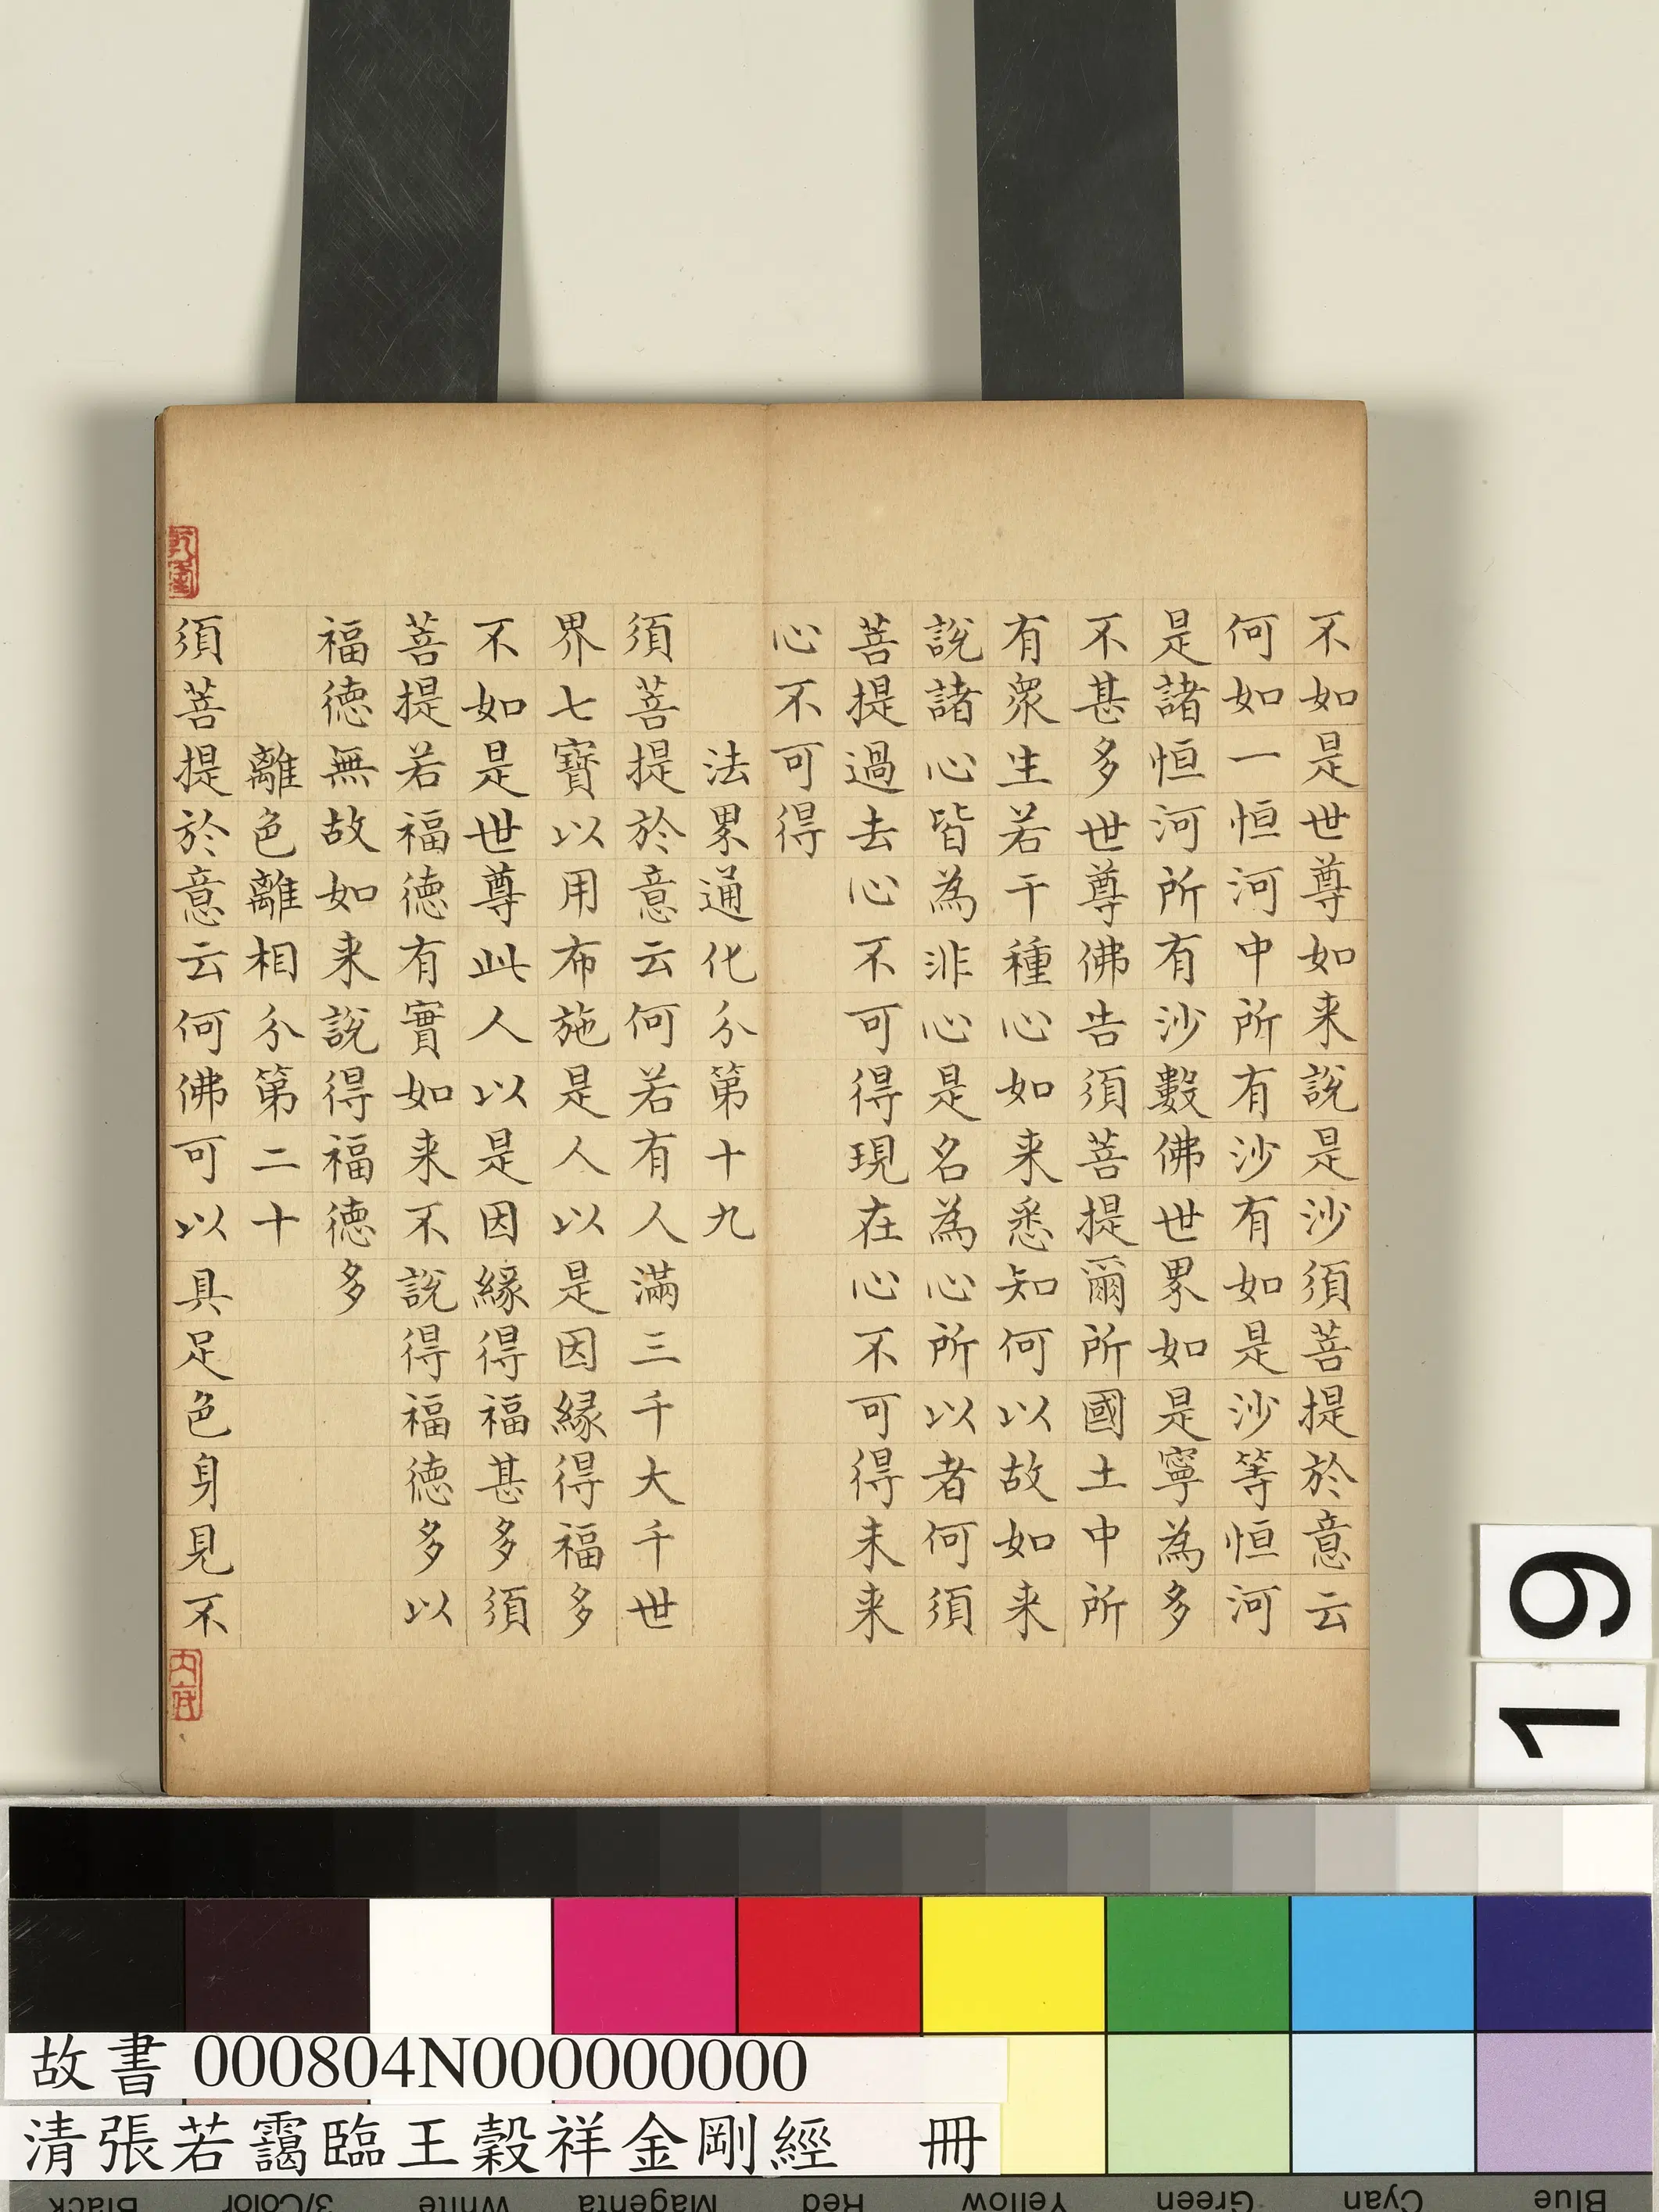 不如是世尊如来說是沙須菩提於意云
何如一恒河中所有沙有如是沙等恒河
是諸恒河所有沙數佛世界如是寧為多
不甚多世尊佛告須菩提爾所國土中所
有眾生若干種心如来悉知何以故如来
說諸心皆為非心是名為心所以者何須
菩提過去心不可得現在心不可得未来
心不可得
法界通化分第十九
須菩提於意云何若有人滿三千大千世
界七寶以用布施是人以是因緣得福多
不如是世尊此人以是因緣得福甚多須
菩提若福德有實如来不說得福德多以
福德無故如来說得福德多
離色離相分第二十
須菩提於意云何佛可以具足色身見不
19
故書 000804N000000000
清張若靄臨王穀祥金剛經 冊
Black 3/Color White Magenta Red Yellow Green Cyan Blue